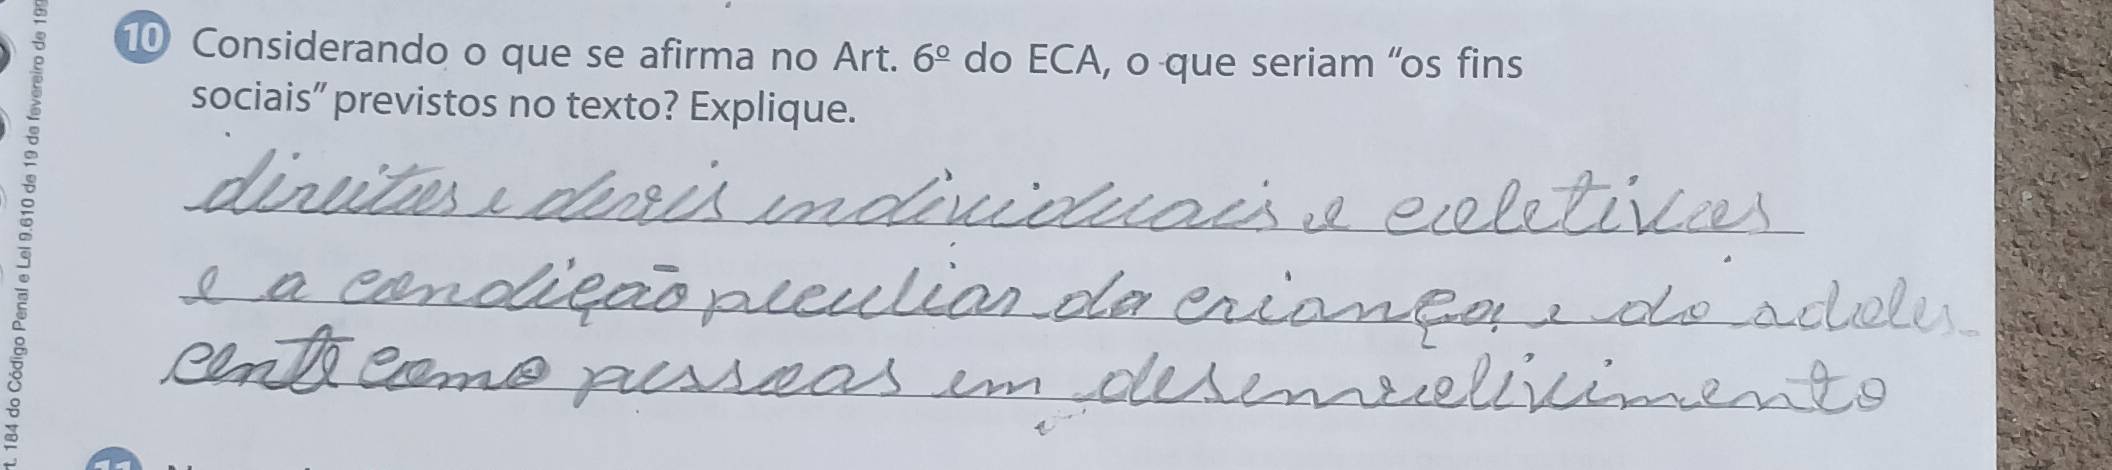 t. 184 do Código Penal e Lei 9.610 de 19 de fevereiro de 199
10 Considerando o que se afirma no Art. 6º do ECA, o que seriam “os fins
sociais” previstos no texto? Explique.
direitos e deveis individuais e coletivos
e a condição peculiar da criança e do adoles
cente como pessoas em desenvolvimento
11